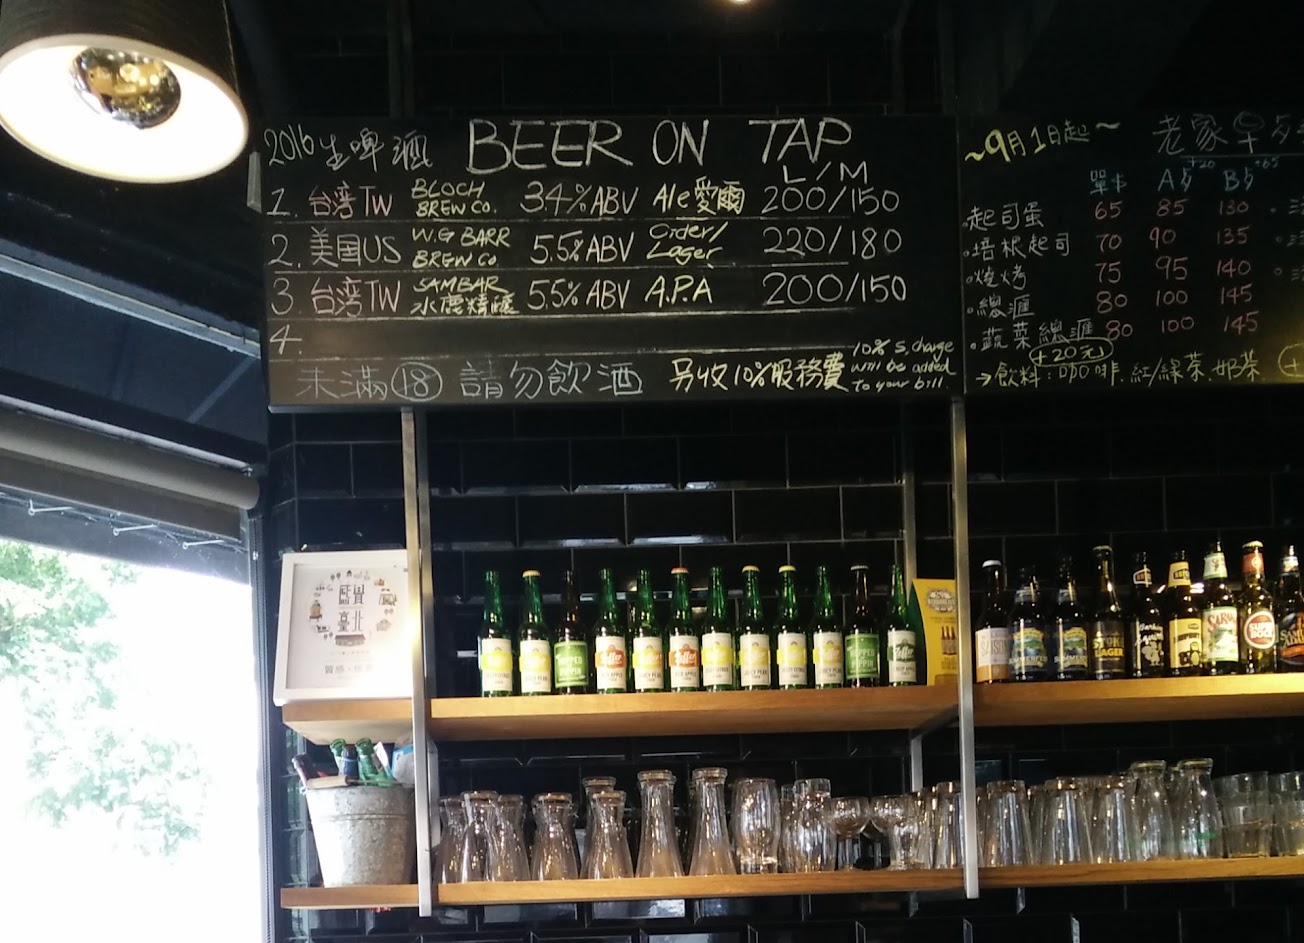 2016生啤酒 BEER ON TAP
L/M
1. 台湾TW BLOCH BREW CO. 3.4%ABV Ale愛爾 200/150
2. 美国US W.G BARR BREW CO 5.5%ABV Cider/Lager 220/180
3 台湾TW SAMBAR 水鹿精釀 5.5%ABV A.P.A 200/150
4.
未滿18請勿飲酒 另收10%服務費 10% S, charge will be added to your bill.
~9月1日起~ 老家早
+20 +65
單卡 A B
起司蛋 65 85 130
培根起司 70 90 135
燒烤 75 95 140
總滙 80 100 145
蔬菜總滙 80 100 145
+20元
→飲料:咖啡.紅/綠茶.奶茶
臺北
質感
SAISON
STOKE
LAGER